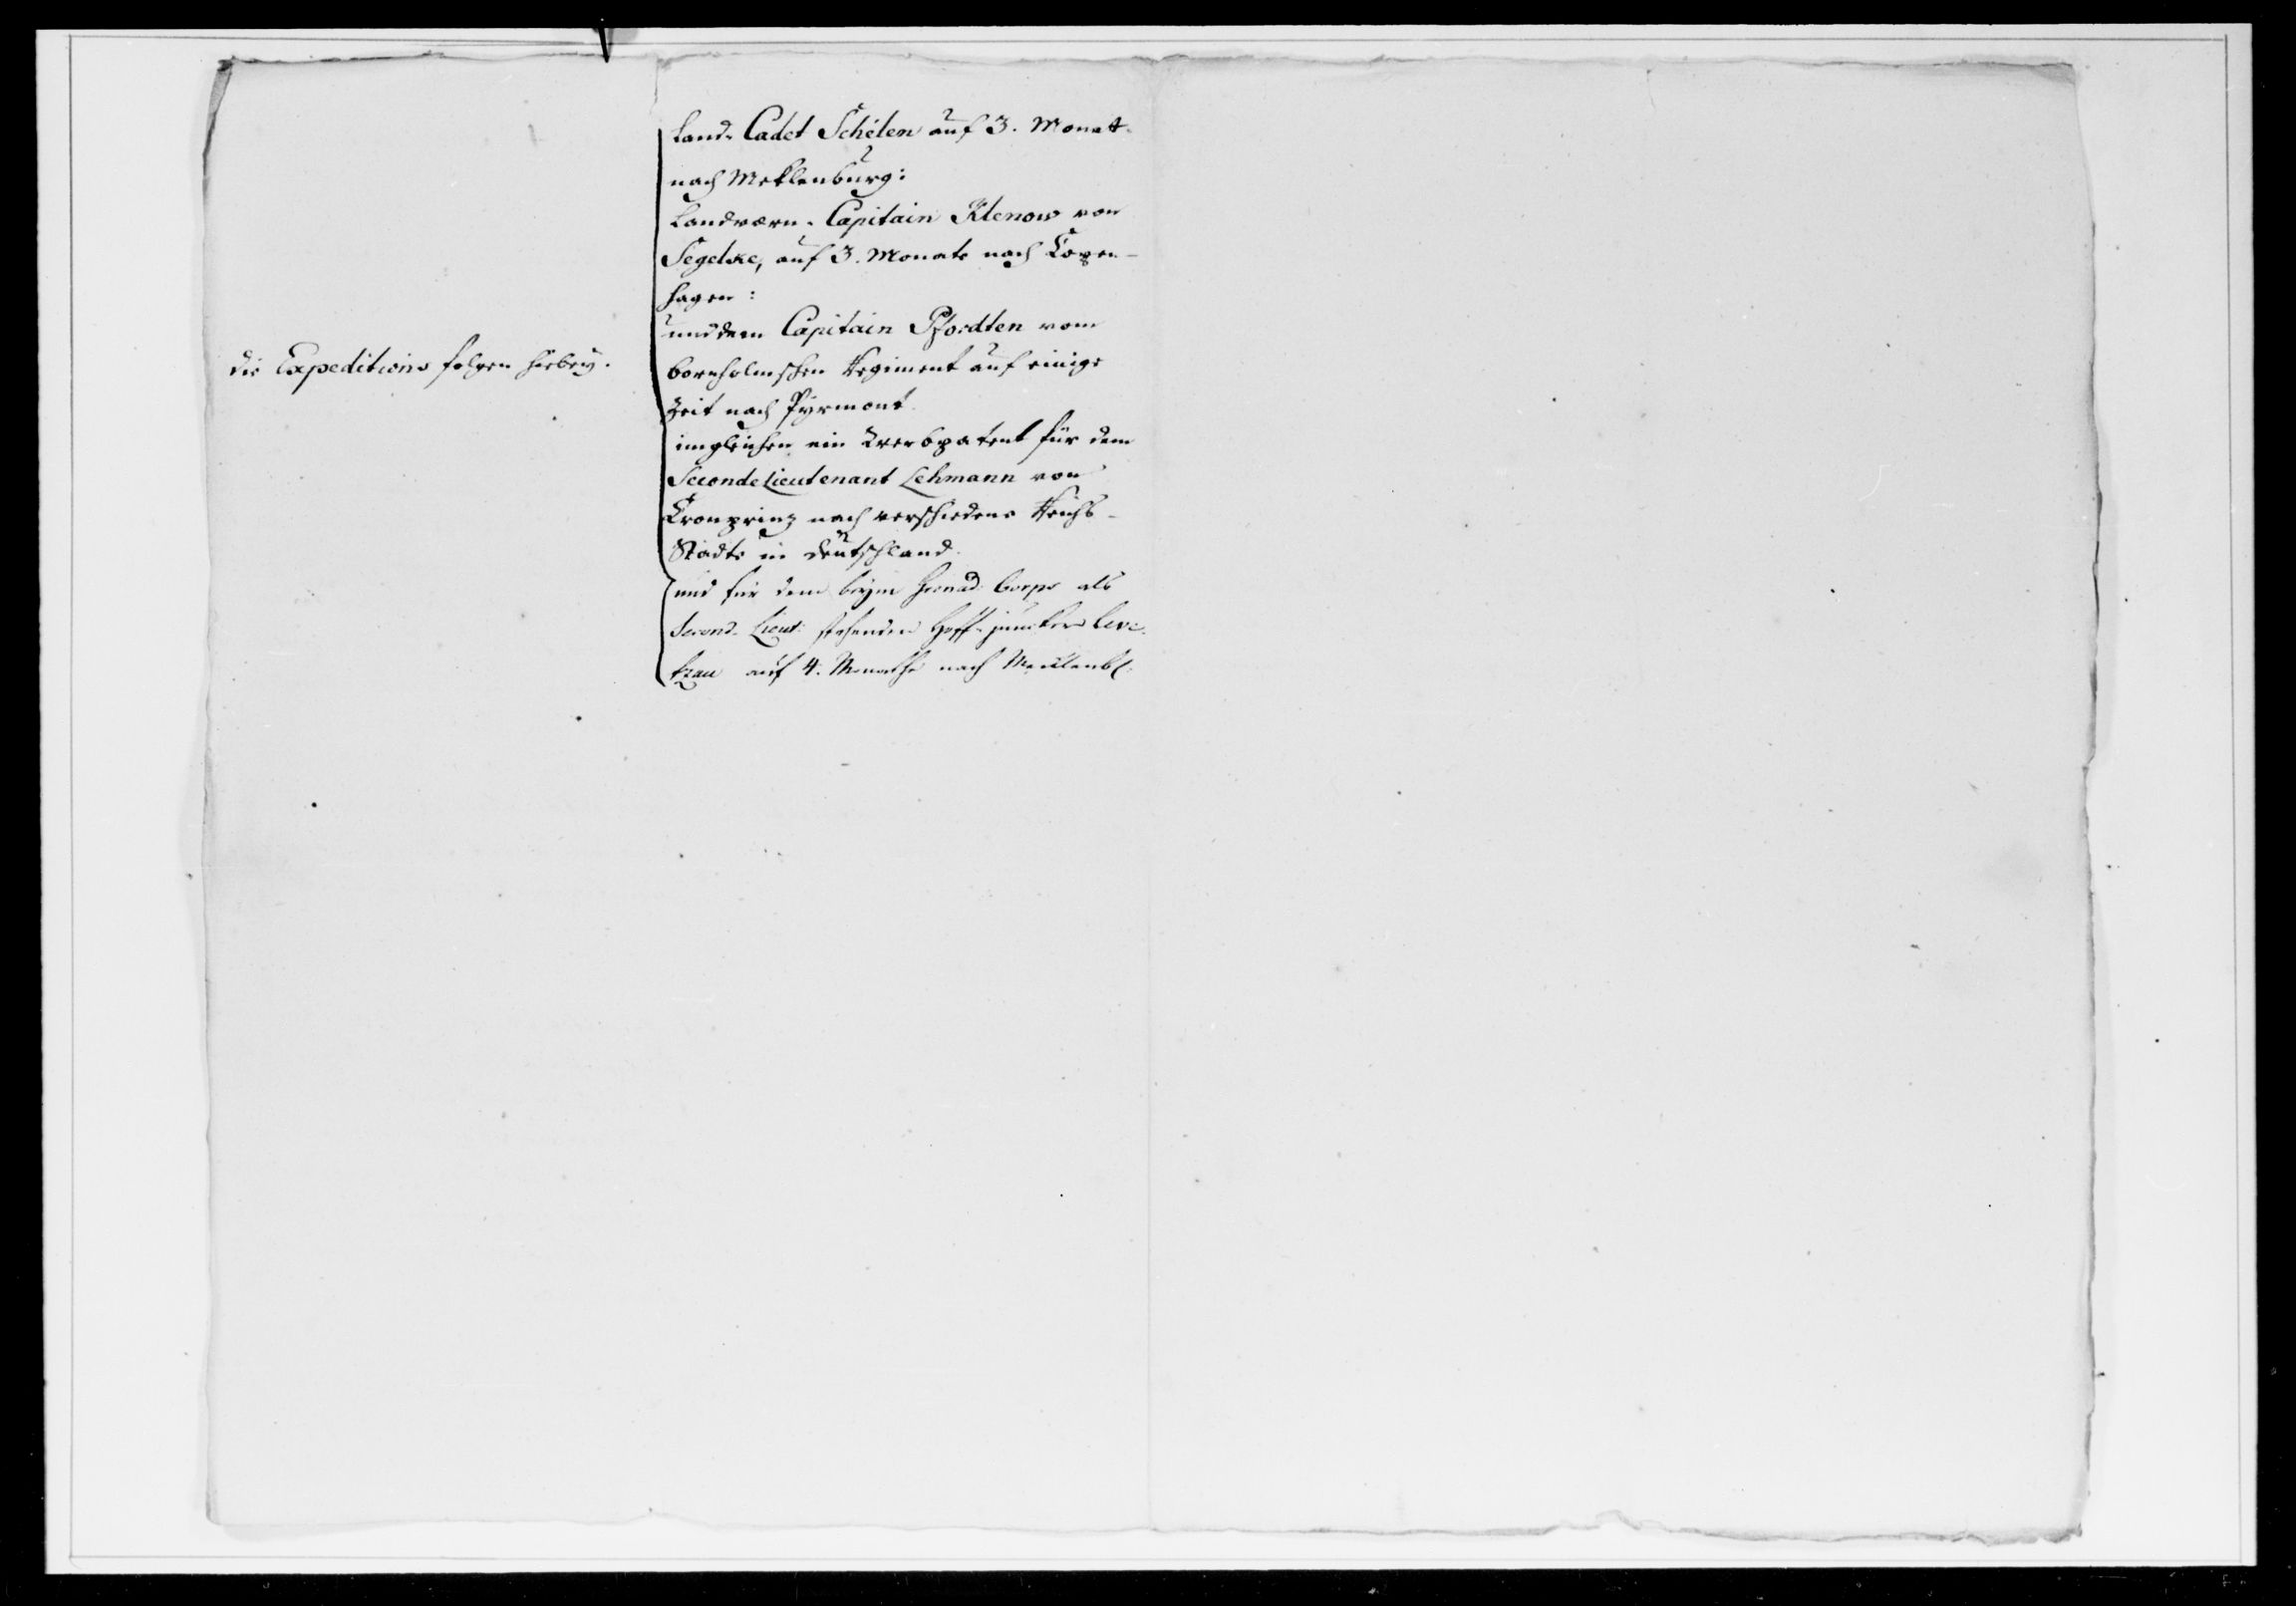 die Expeditions folgen hiebey.
Land-Cadet Schélen auf 3. Monat
nach Meklenburg:
Landwern-Capitain Klenow von
Segelcke, auf 3. Monate nach Copen-
hagen:
und dem Capitain Pfordten vom
bornholmschen Regiment auf einige
Zeit nach Pyrmont.
imgleichen ein Werbpatent für dem
Seconde Lieutenant Lehmann von
Cronprinz nach verschiedene Reichs-
Städte in Deutschland.
und für dem beym Grenad: Corps als
Second-Lieut: stehenden Hoff-juncker Leve-
tzau auf 4. Monathe nach Mecklenb.